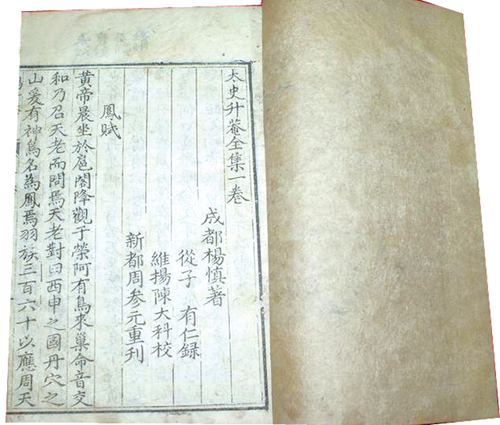 太史升菴全集一卷
成都楊慎著
從子 有仁録
維揚陳大科校
新都周參元重刊
鳳賦
黄帝晨坐於扈閣降觀于榮阿有鳥來巢命音交
和乃召天老而問焉天老對曰西申之國丹穴之
山爰有神鳥名為鳳焉羽族三百六十以應周天